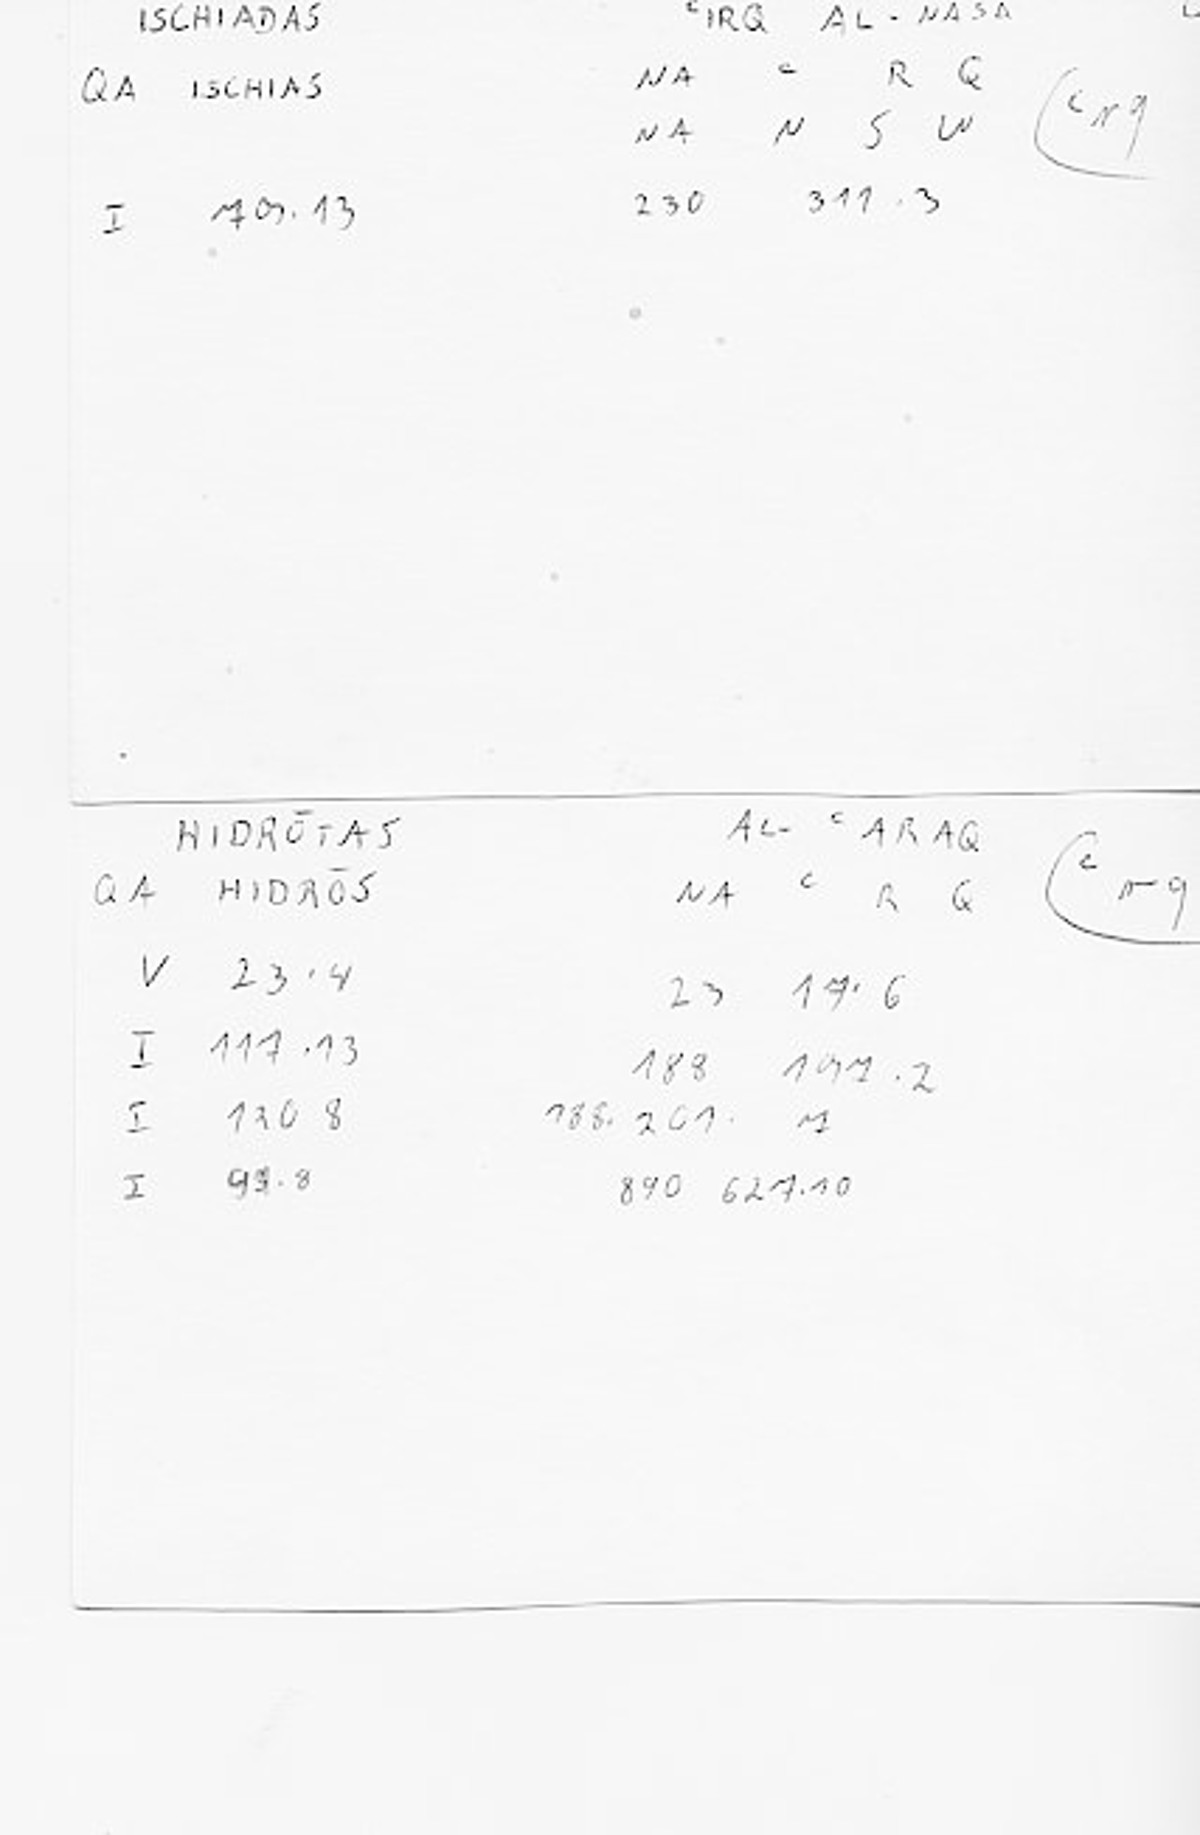 ISCHIADAS ꜤIRQ AL-NASA
QA ISCHIAS NA Ꜥ R Q (Ꜥrq
NA N S W
I 709.13 230 311.3
HIDRŌTAS AL-ꜤARAQ
QA HIDRŌS NA Ꜥ R Q (Ꜥrq
V 23.4 23 17.6
I 117.13 188 197.2
I 120 8 188. 201. 7
I 8 890 627.10